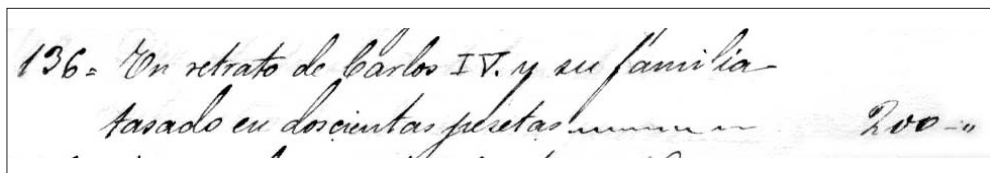 136= Un retrato de Carlos IV. y su familia
tasado en doscientas pesetas 200-"